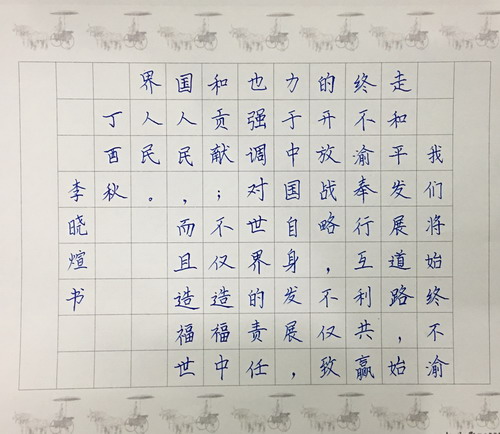 我们将始终不渝
走和平发展道路，始
终不渝奉行互利共赢
的开放战略，不仅致
力于中国自身发展，
也强调对世界的责任
和贡献；不仅造福中
国人民，而且造福世
界人民。
丁酉秋
李晓煊书